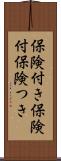 保険付き保険
付保険つき